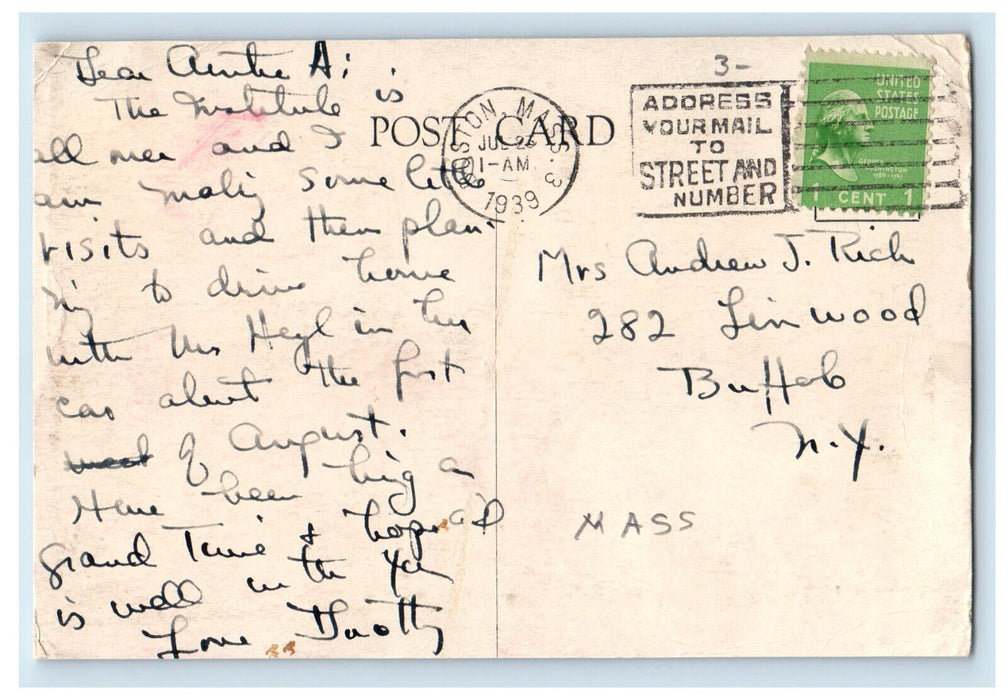 Dear Auntie A;
The Institute is
all over and I
am making some little
visits and then plan-
ing to drive home
with Mrs Heyl in her
car about the first
of August.
Have been having a
grand Time & hope all
is well with you
Love Dotty
POST CARD
BOSTON, MASS.
JUL 23
1-AM
1939
3-
ADDRESS
YOUR MAIL
TO
STREET AND
NUMBER
UNITED
STATES
POSTAGE
GEORGE
WASHINGTON
1789-1797
1 CENT 1
Mrs Andrew J. Rich
282 Linwood
Buffalo
N.Y.
MASS